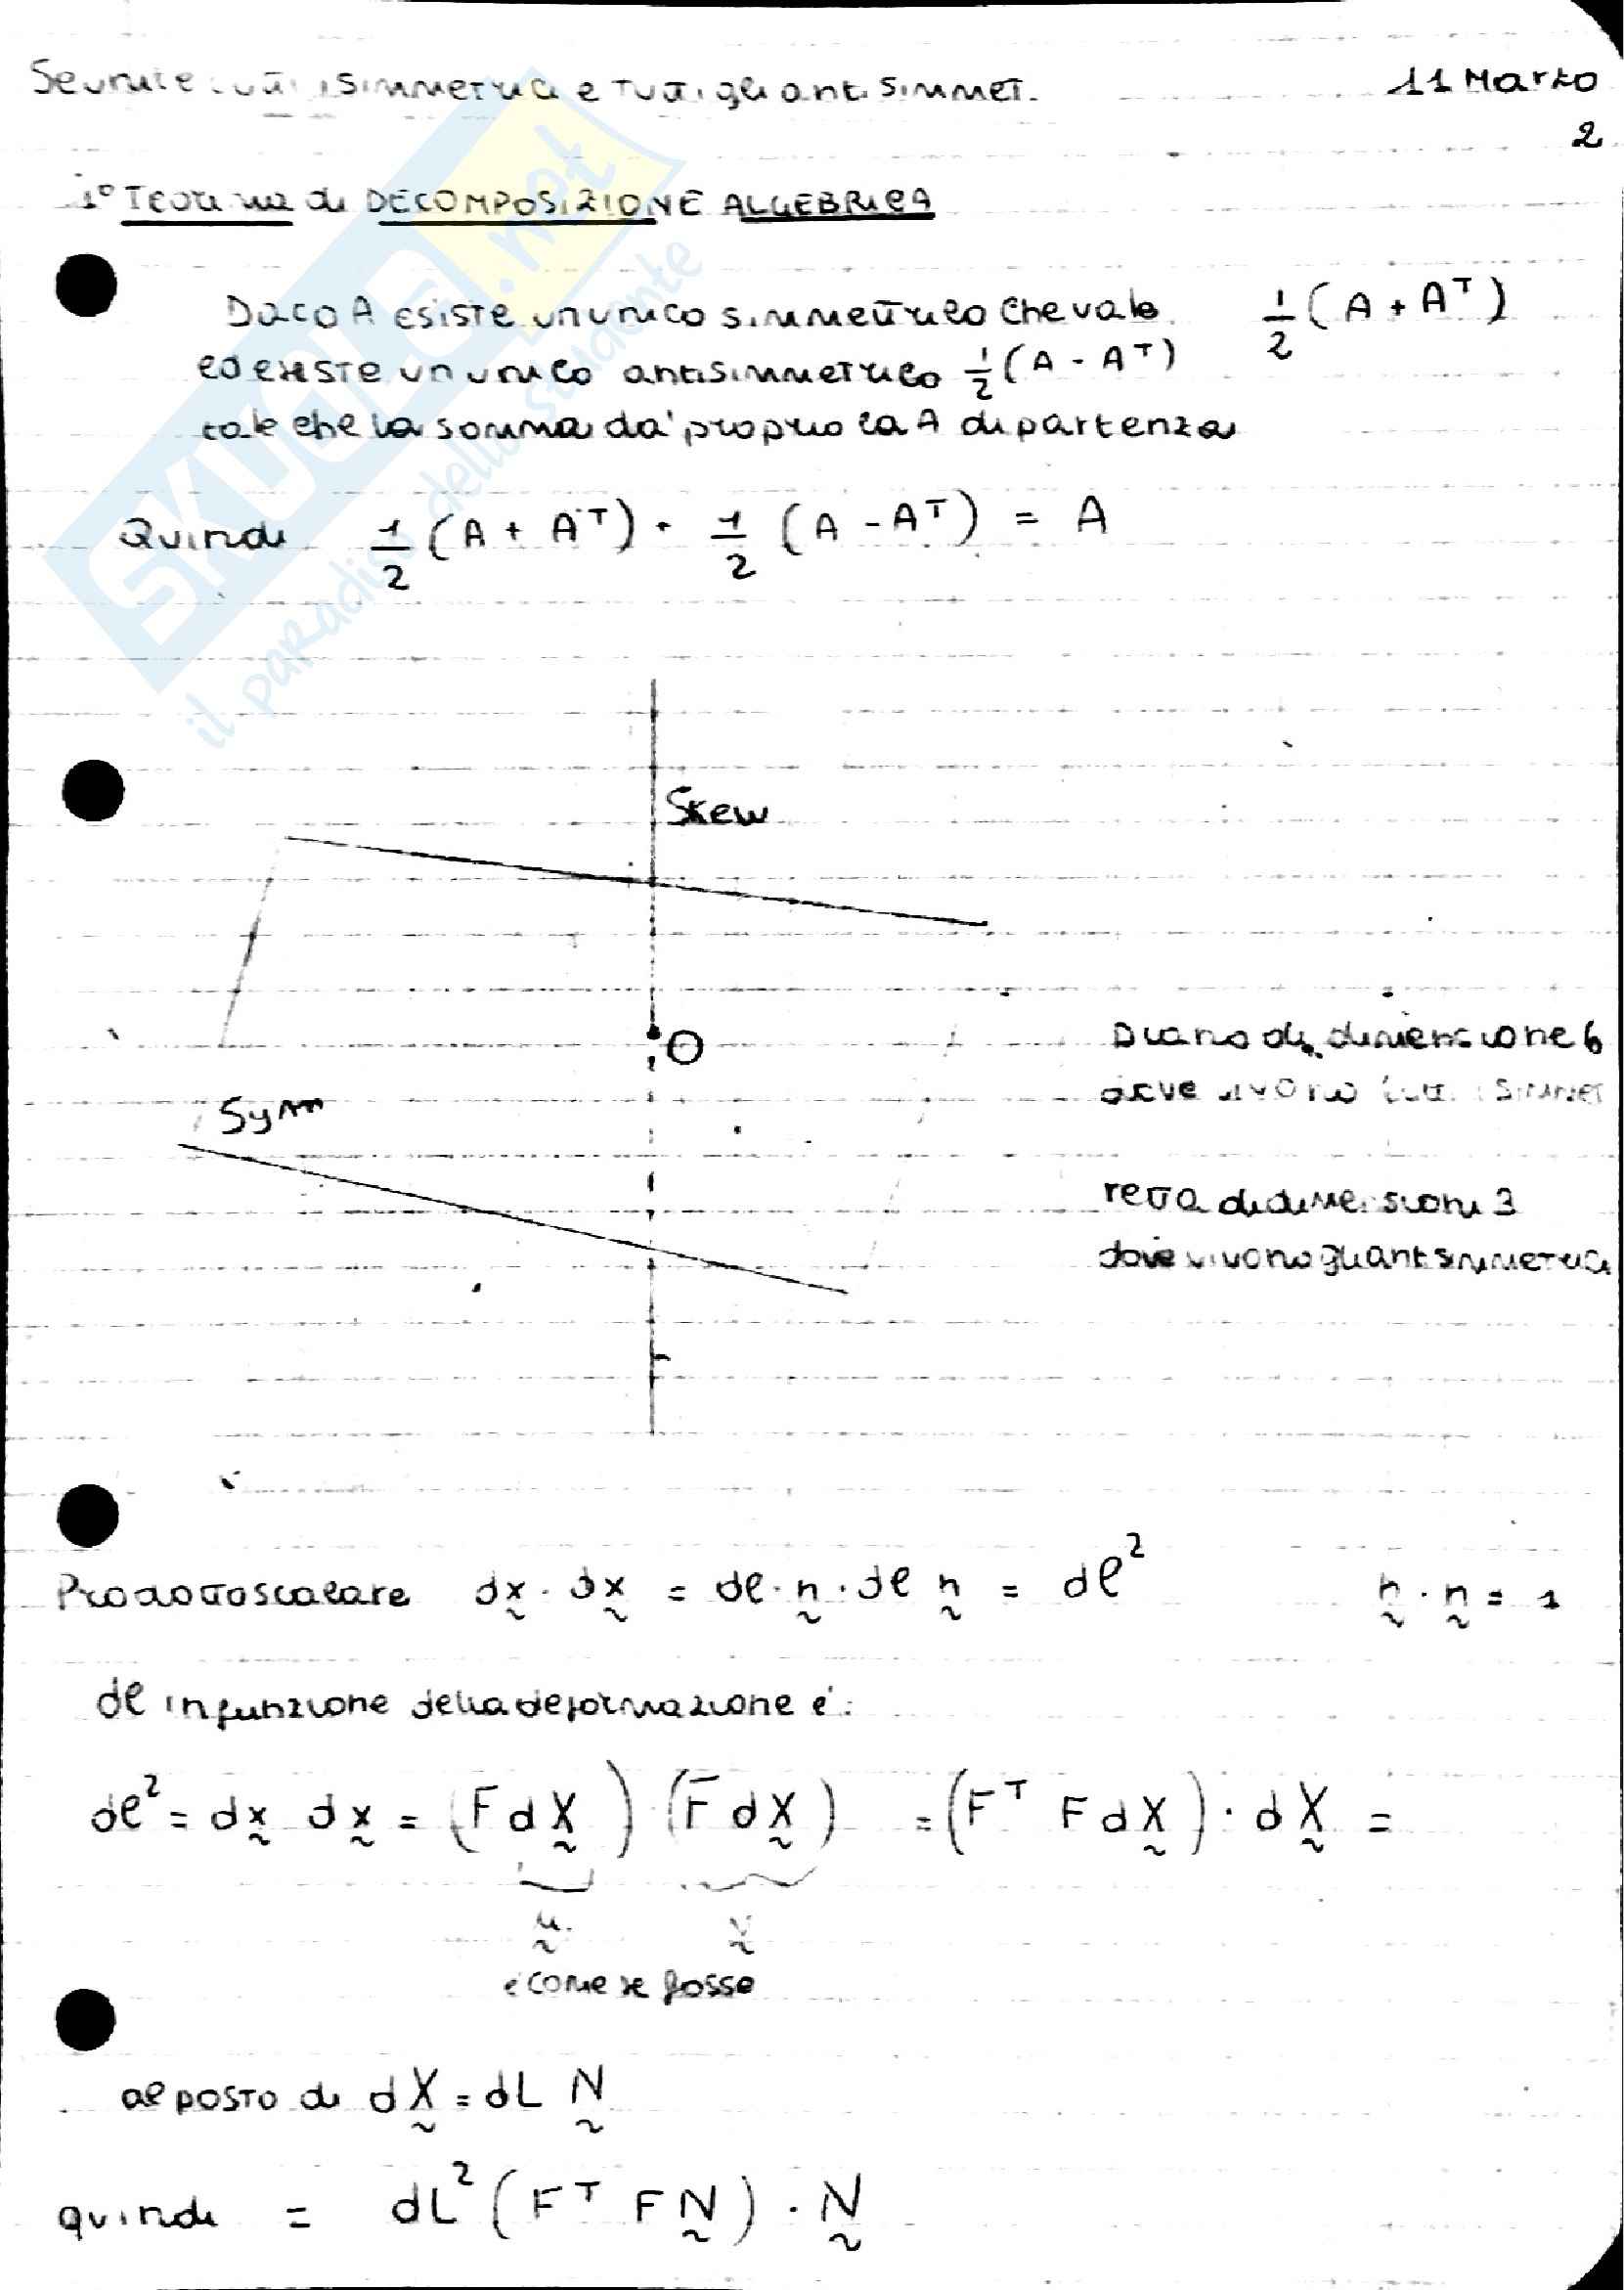 Se unite tutti i simmetrici e tutti gli antisimmet.
11 Marzo
2
1° Teorema di DECOMPOSIZIONE ALGEBRICA
Dato A esiste un unico simmetrico che vale 1/2 (A + Aᵀ)
ed esiste un unico antisimmetrico 1/2 (A - Aᵀ)
tale che la somma da' proprio la A di partenza
Quindi 1/2 (A + Aᵀ) + 1/2 (A - Aᵀ) = A
SKUOLA.net
il paradiso dello studente
Skew
O
Piano di dimensione 6
dove vivono tutti i simmet
Sym
retta di dimensioni 3
dove vivono gli antisimmetrici
Prodotto scalare dx̰ · dx̰ = dl · ṋ · dl ṋ = dl² ṋ · ṋ = 1
dl in funzione della deformazione é:
dl² = dx̰ dx̰ = (F dX̰) · (F dX̰) = (Fᵀ F dX̰) · dX̰ =
ṵ v̰
é come se fosse
al posto di dX̰ = dL Ṋ
quindi = dL² (Fᵀ F Ṋ) · Ṋ